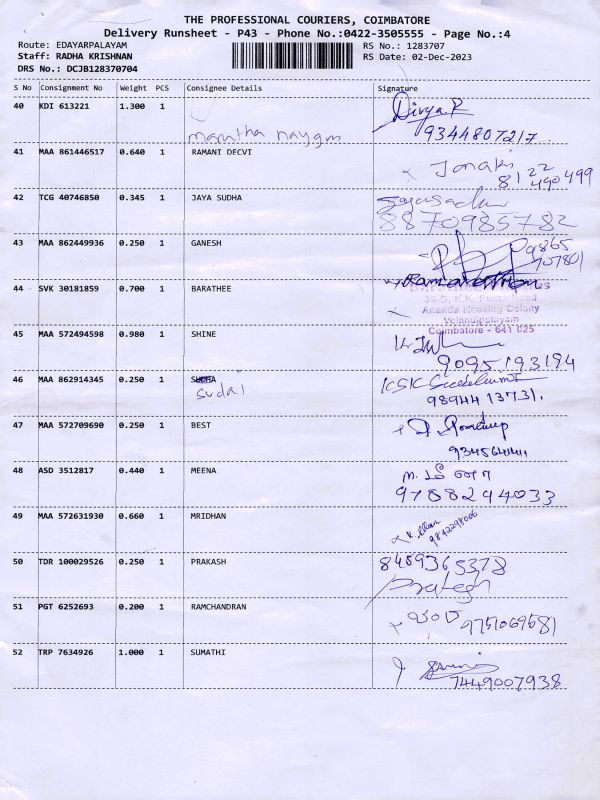 THE PROFESSIONAL COURIERS, COIMBATORE
Delivery Runsheet - P43 - Phone No.:0422-3505555 - Page No.:4
Route: EDAYARPALAYAM RS No.: 1283707
Staff: RADHA KRISHNAN RS Date: 02-Dec-2023
DRS No.: DCJB128370704
S No Consignment No Weight PCS Consignee Details Signature
40 KDI 613221 1.300 1 Divya.R
9344807217
41 MAA 861446517 0.640 1 RAMANI DECVI Janaki
8122
490499
42 TCG 40746850 0.345 1 JAYA SUDHA
8870985782
43 MAA 862449936 0.250 1 GANESH 9865
44 SVK 30181859 0.700 1 BARATHEE
Ananda Housing Colony
Velandipalayam
Coimbatore - 641 025
45 MAA 572494598 0.980 1 SHINE
9095193194
46 MAA 862914345 0.250 1 SUDHA
sudai
98944 13731.
47 MAA 572709690 0.250 1 BEST
48 ASD 3512817 0.440 1 MEENA
9788294033
49 MAA 572631930 0.660 1 MRIDHAN
50 TDR 100029526 0.250 1 PRAKASH 8489365378
51 PGT 6252693 0.200 1 RAMCHANDRAN
9751069581
52 TRP 7634926 1.000 1 SUMATHI
7449007938